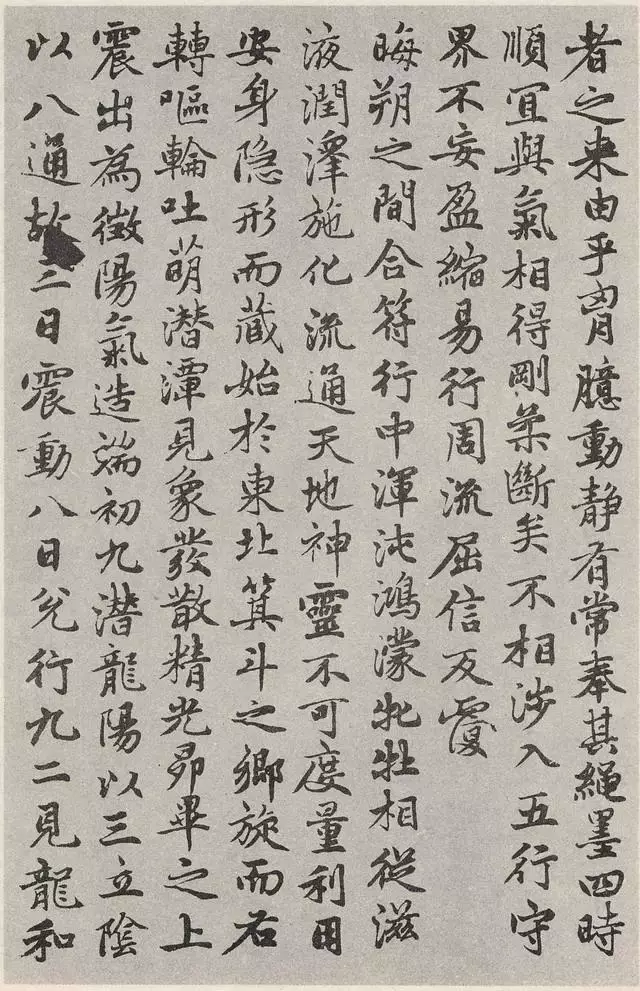 者之来由乎胷臆動静有常奉其繩墨四時
順冝與氣相得剛柔斷矣不相涉入五行守
界不妄盈縮易行周流屈信反覆
晦朔之間合符行中渾沌鴻濛牝牡相從滋
液潤澤施化流通天地神靈不可度量利用
安身隐形而蔵始於東北箕斗之鄉旋而右
轉嘔輪吐萌潜潭見象發散精光昴畢之上
震出為徵陽氣造端初九潜龍陽以三立陰
以八通故二日震動八日兊行九二見龍和